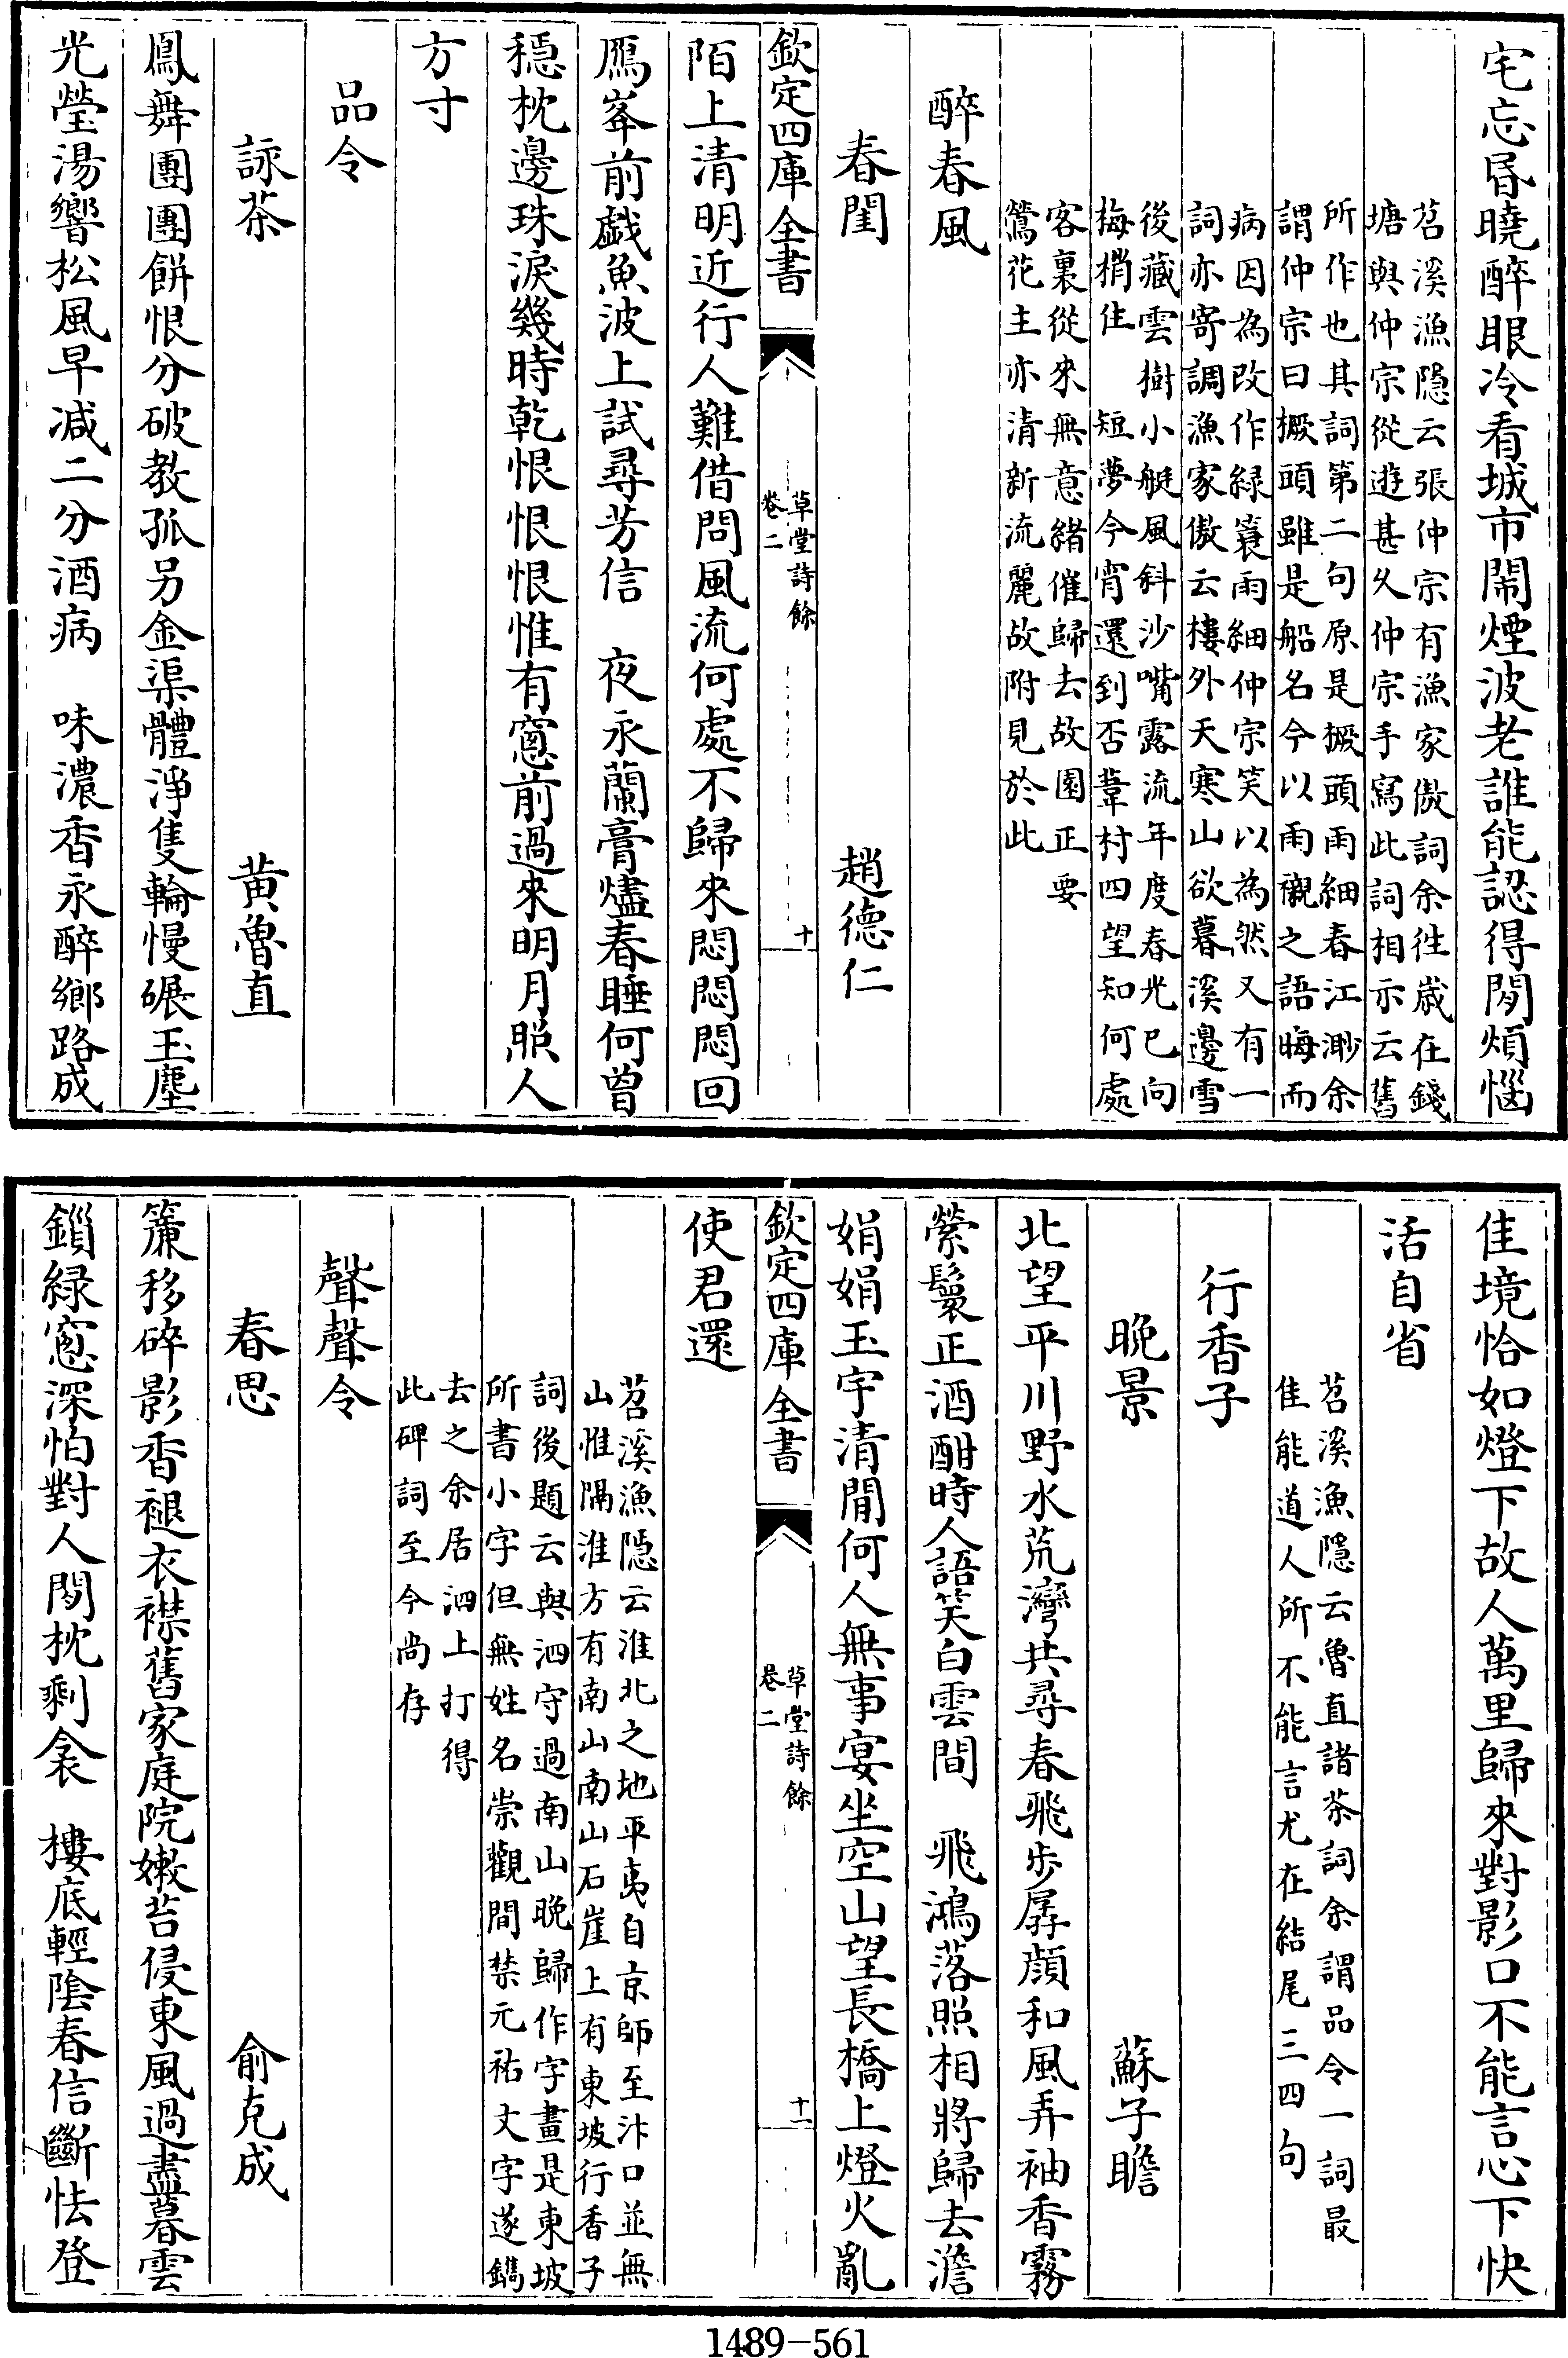 宅忘昬曉醉眼冷看城市閙煙波老誰能認得閒煩惱
苕溪漁隠云張仲宗有漁家傲詞余徃歳在錢
塘與仲宗從遊甚乆仲宗手寫此詞相示云舊
所作也其詞第二句原是撅頭雨細春江渺余
謂仲宗曰撅頭雖是船名今以雨襯之語晦而
病因為改作緑蓑雨細仲宗笑以為然又有一
詞亦寄調漁家傲云樓外天寒山欲暮溪邊雪
後藏雲樹小艇風斜沙嘴露流年度春光已向
梅梢住 短夢今宵還到否葦村四望知何處
客裏從來無意緒催歸去故園正要
鶯花主亦清新流麗故附見於此
醉春風
春閨 趙德仁
欽定四庫全書 草堂詩餘 卷二 十
陌上清明近行人難借問風流何處不歸來悶悶悶回
鴈峯前戯魚波上試尋芳信 夜永蘭膏燼春睡何曽
穏枕邊珠淚幾時乾恨恨恨惟有窻前過來明月照人
方寸
品令
詠茶 黄魯直
鳳舞團團餅恨分破教孤另金渠體淨隻輪慢碾玉塵
光瑩湯響松風早减二分酒病 味濃香永醉鄉路成
佳境恰如燈下故人萬里歸來對影口不能言心下快
活自省
苕溪漁隠云魯直諸茶詞余謂品令一詞最
佳能道人所不能言尤在結尾三四句
行香子
晚景 蘇子瞻
北望平川野水荒灣共尋春飛步孱顔和風弄袖香霧
縈鬟正酒酣時人語笑白雲間 飛鴻落照相將歸去澹
娟娟玉宇清閒何人無事宴坐空山望長橋上燈火亂
欽定四庫全書 草堂詩餘 卷二 十一
使君還
苕溪漁隠云淮北之地平夷自京師至汴口並無
山惟隔淮方有南山南山石崖上有東坡行香子
詞後題云與泗守過南山晚歸作字畫是東坡
所書小字但無姓名崇觀間禁元祐文字遂鐫
去之余居泗上打得
此碑詞至今尚存
聲聲令
春思 俞克成
簾移碎影香褪衣襟舊家庭院嫩苔侵東風過盡暮雲
鎖緑窻深怕對人閒枕剩衾 樓底輕陰春信斷怯登
1489-561